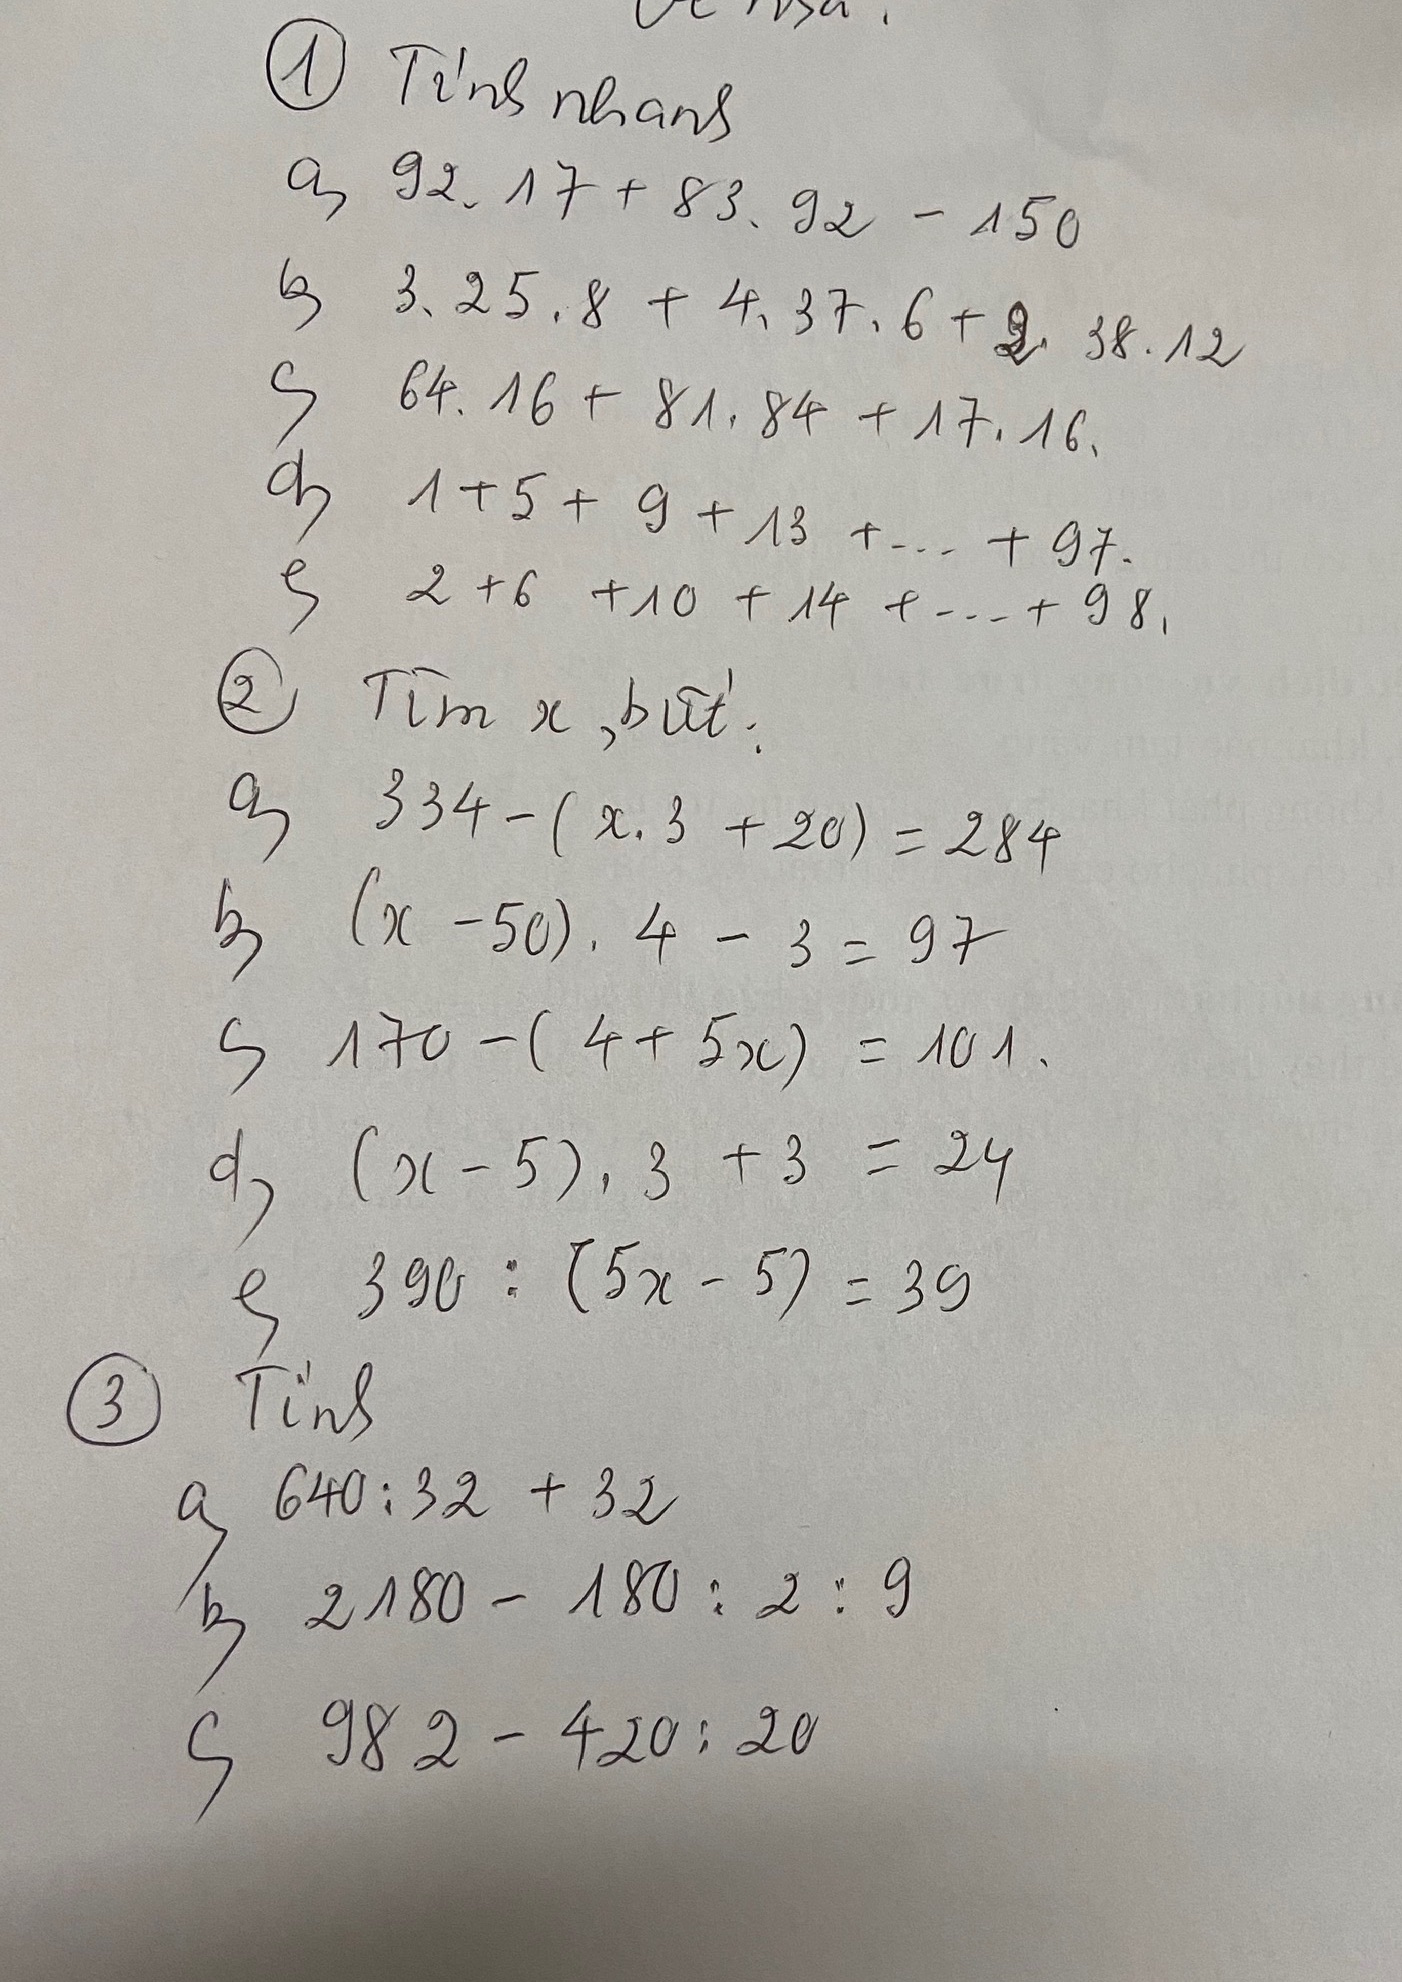 Về nhà:
① Tính nhanh
a, 92. 17 + 83. 92 - 150
b, 3. 25. 8 + 4. 37. 6 + 2. 38. 12
c, 64. 16 + 81. 84 + 17. 16.
d, 1 + 5 + 9 + 13 + ... + 97.
e, 2 + 6 + 10 + 14 + ... + 98.
② Tìm x, biết:
a, 334 - (x. 3 + 20) = 284
b, (x - 50). 4 - 3 = 97
c, 170 - (4 + 5x) = 101.
d, (x - 5). 3 + 3 = 24
e, 390 : (5x - 5) = 39
③ Tính
a, 640 : 32 + 32
b, 2180 - 180 : 2 : 9
c, 982 - 420 : 20